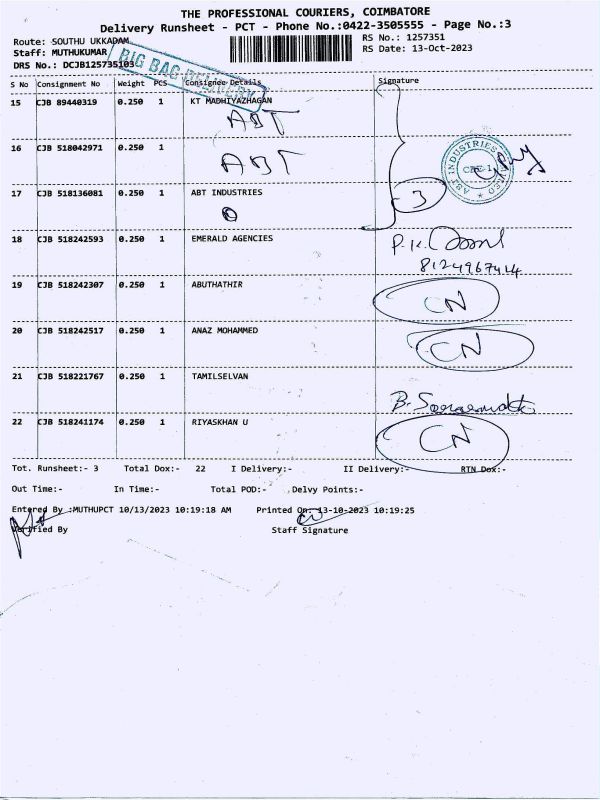 THE PROFESSIONAL COURIERS, COIMBATORE
Delivery Runsheet - PCT - Phone No.:0422-3505555 - Page No.:3
Route: SOUTHU UKKADAM RS No.: 1257351
Staff: MUTHUKUMAR RS Date: 13-Oct-2023
DRS No.: DCJB125735103
BIG BAG DELIVERY
S No Consignment No Weight PCS Consignee Details Signature
15 CJB 89440319 0.250 1 KT MADHIYAZHAGAN
ABT
16 CJB 518042971 0.250 1
ABT
ABT INDUSTRIES
17 CJB 518136081 0.250 1 ABT INDUSTRIES 3
18 CJB 518242593 0.250 1 EMERALD AGENCIES
8124967414
19 CJB 518242307 0.250 1 ABUTHATHIR CN
20 CJB 518242517 0.250 1 ANAZ MOHAMMED CN
21 CJB 518221767 0.250 1 TAMILSELVAN
22 CJB 518241174 0.250 1 RIYASKHAN U CN
Tot. Runsheet:- 3 Total Dox:- 22 I Delivery:- II Delivery:- RTN Dox:-
Out Time:- In Time:- Total POD:- Delvy Points:-
Entered By :MUTHUPCT 10/13/2023 10:19:18 AM Printed On: 13-10-2023 10:19:25
Verified By Staff Signature